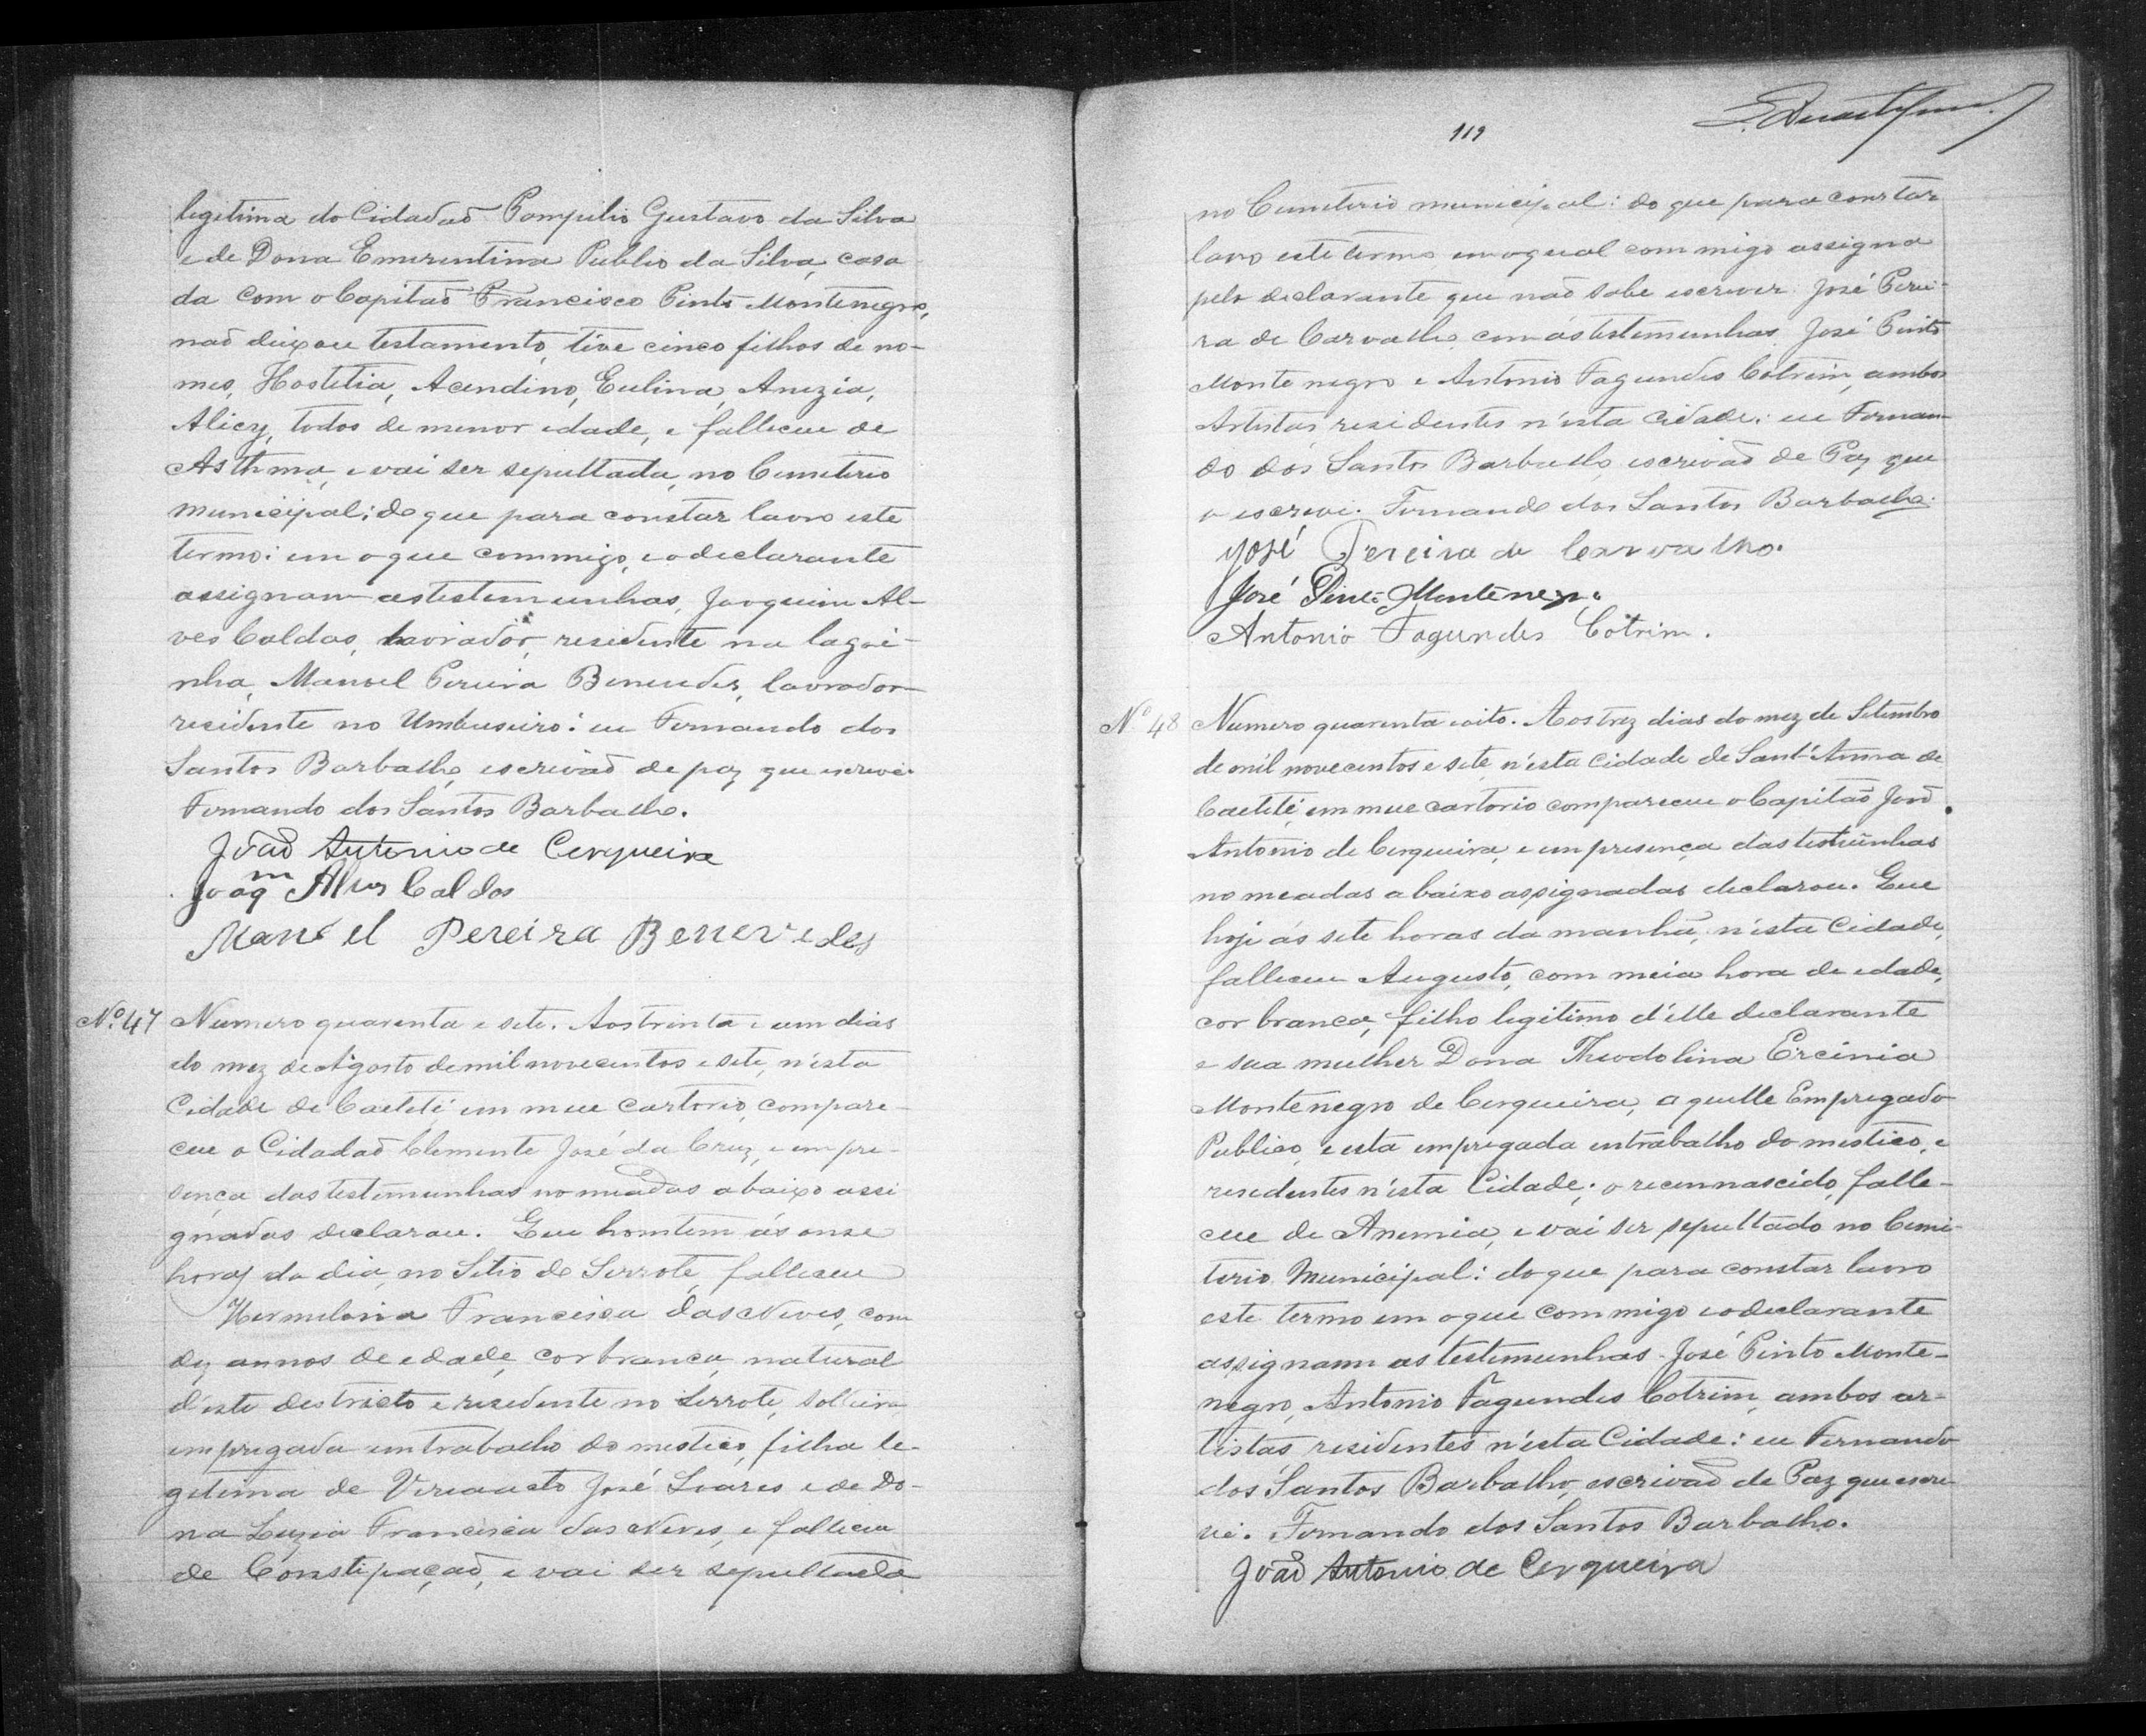 legitima do Cidadaõ Pompilio Gustavo da Silva
e de Dona Emerentina Publio da Silva, casa
da com o Capitaõ Francisco Pinto Montenegro,
naõ deixou testamento, tive cinco filhos de no-
mes, Hostilia, Acendino, Eulina, Anizia,
Alicy, todos de menor edade, e falleceu de
Asthma, e vai ser sepultada, no Cemiterio
Municipal; do que para constar lavro este
termo: em o que commigo, e o declarante
assignam as testemunhas, Joaquim Al-
ves Caldas, lavrador, residente na lagoi-
nha, Manoel Pereira Benevides, lavrador
residente no Umbuseiro: eu Fernando dos
Santos Barbalho, escrivaõ de paz que escrevi.
Fernando dos Santos Barbalho.
Joaõ Antonio de Cerqueira
Joaqm Alves Caldas
Manoel Pereira Benevides
No. 47 Numero quarenta e sete. Aos trinta e um dias
do mez de Agosto de mil novecentos e sete, n'esta
Cidade de Caeteté em meu cartorio, compare-
ceu o Cidadaõ Clemente José da Cruz, e em pre-
sença das testemunhas nomeadas abaixo assi
gnadas declarou. Que hontem ás onse
horas do dia, no Sitio do Serrote, falleceu
Francisca das Neves, com
dez annos de edade, cor branca, natural
d'este destricto e residente no Serrote, solteira
empregada em trabalho domestico, filha le-
getima de José Soares e de Do-
na Luzia Francisca das Neves, e falleceu
de Constipaçaõ, e vai ser sepultada
119
no Cemiterio municipal: do que para constar
lavro este termo em o qual commigo assigna
pelo declarante que naõ sabe escrever José Perei-
ra de Carvalho, com ás testemunhas José Pinto
Montenegro e Antonio Fagundes Cotrim, ambos
Artistas residentes n'esta Cidade: eu Fernan-
do dos Santos Barbalho, escrivaõ de Paz que
o escrevi. Fernando dos Santos Barbalho.
José Pereira de Carvalho.
José Pinto Montenegro
Antonio Fagundes Cotrim.
No 48 Numero quarenta e oito. Aos trez dias do mez de Setembro
de mil novecentos e sete, n'esta Cidade de Sant'Anna de
Caeteté, em meu cartorio compareceu o Capitaõ Joaõ
Antonio de Cerqueira, e em presença das testemũnhas
nomeadas abaixo assignadas declarou. Que
hoje ás sete horas da manhã, n'esta Cidade,
falleceu Augusto, com meia hora de edade,
cor branca, filho legitimo d'elle declarante
e sua mulher Dona Theodolina Ercinia
Montenegro de Cerqueira, aquelle Empregado
Publico, e esta empregada em trabalho domestico, e
residentes n'esta Cidade; o recemnascido, falle-
ceu de Anemia, e vai ser sepultado no Cemi-
terio Municipal: do que para constar lavro
este termo em o que commigo e o declarante
assignam as testemunhas José Pinto Monte-
negro, Antonio Fagundes Cotrim, ambos ar-
tistas, residentes n'esta Cidade: eu Fernando
dos Santos Barbalho, escrivaõ de Paz que escre
vi. Fernando dos Santos Barbalho.
Joaõ Antonio de Cerqueira